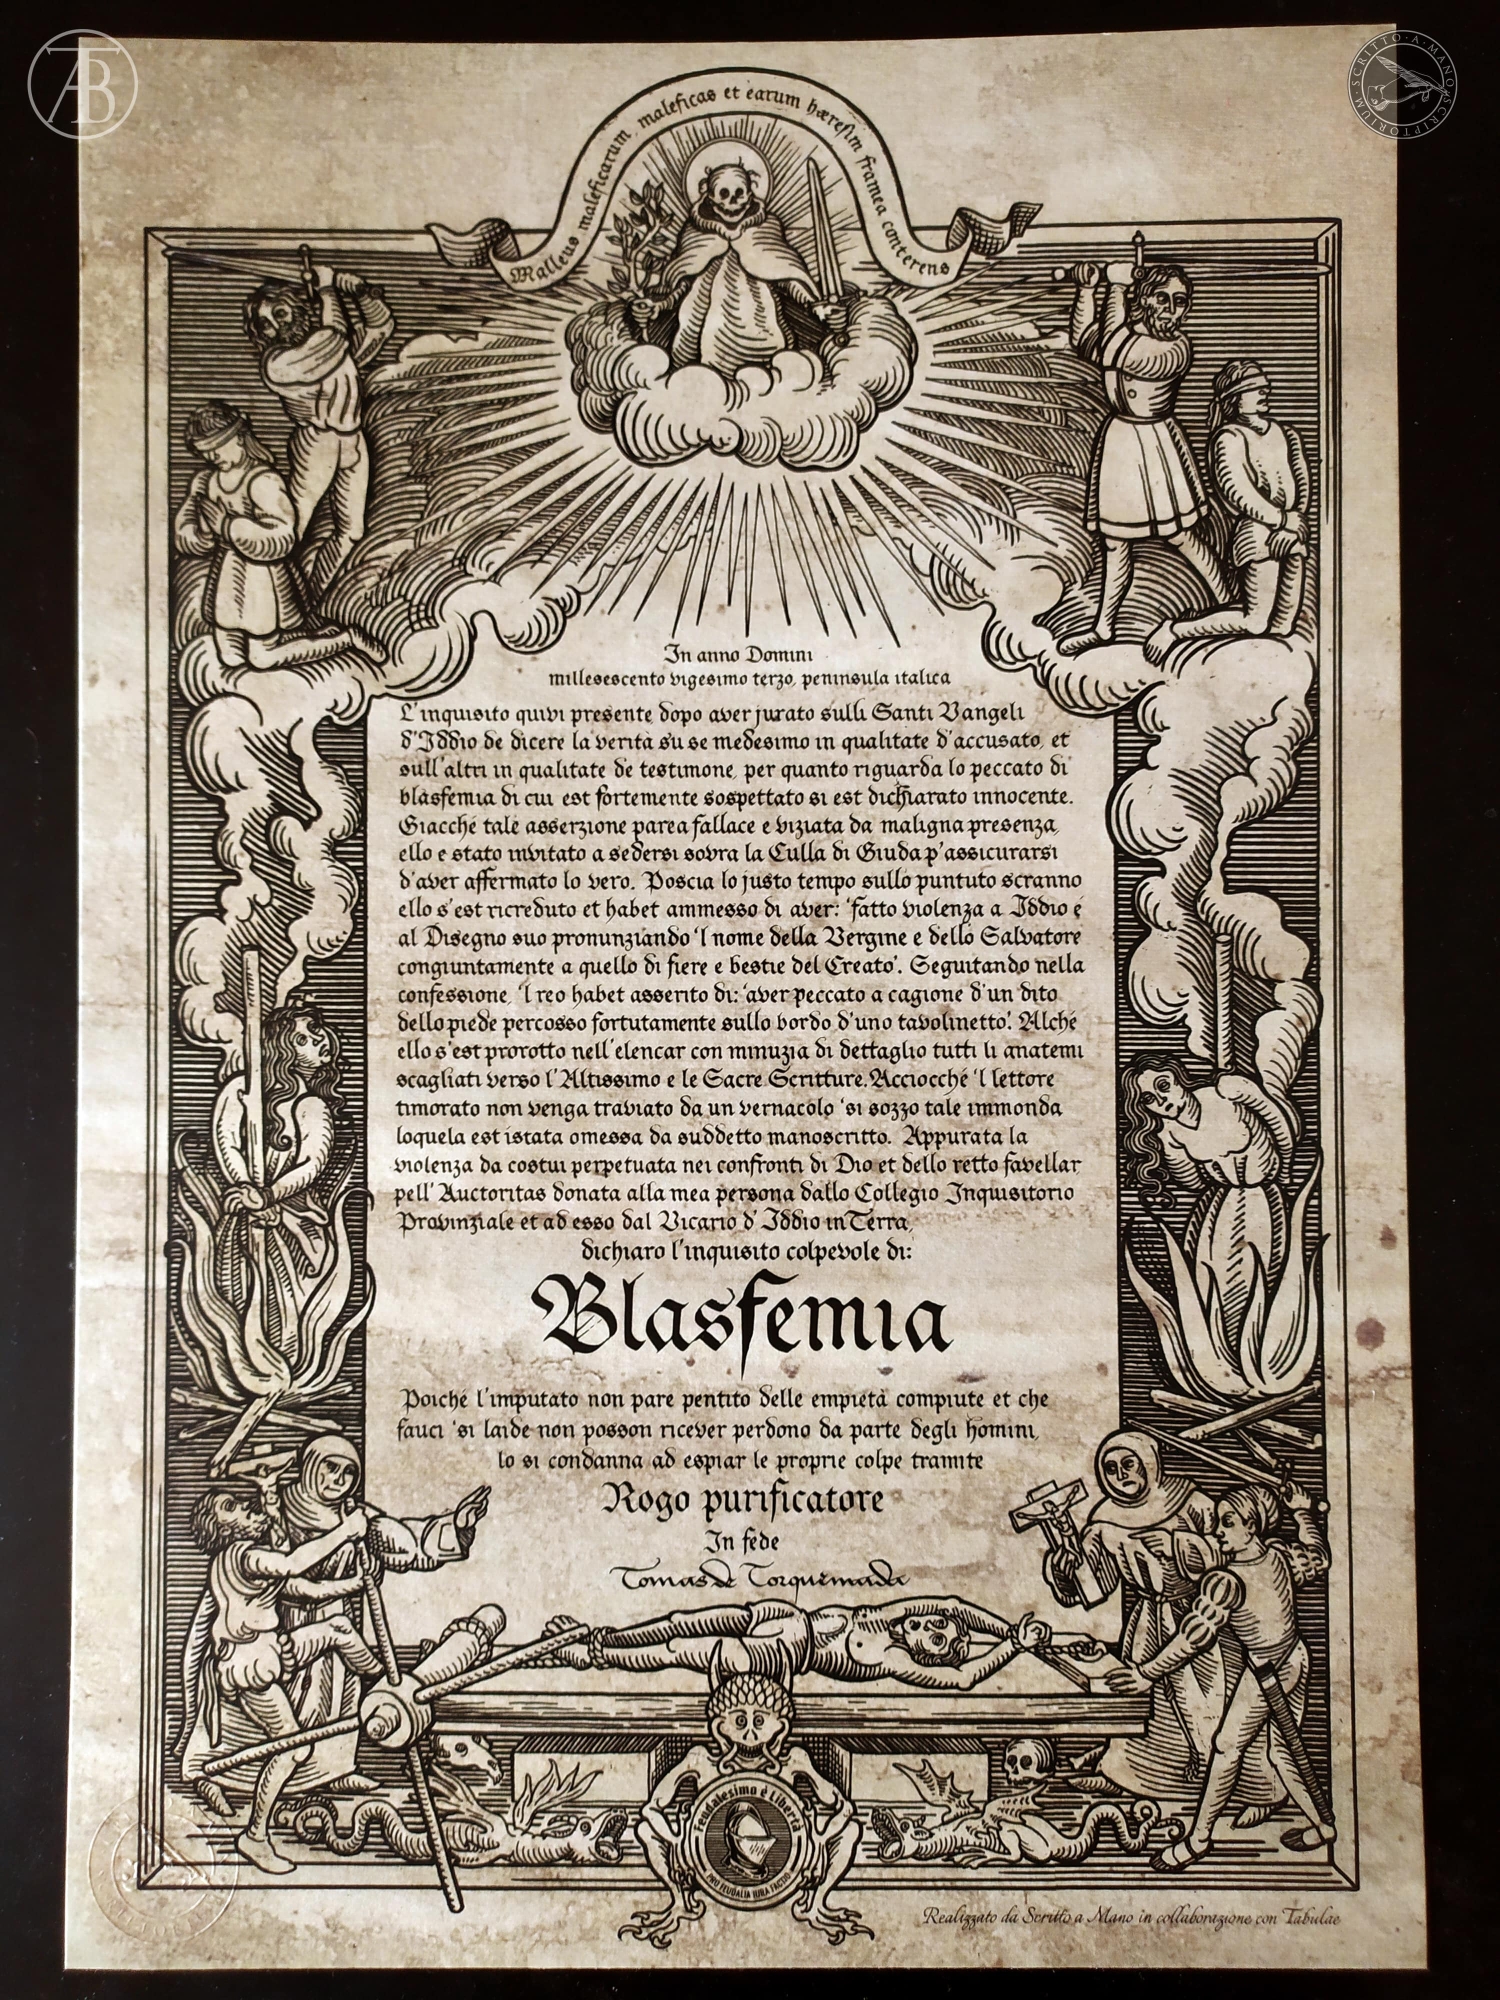 TAB
SCRITTO·A·MANO·SCRIPTORIUM·
Malleus maleficarum, maleficas et earum hæresim framea conterens
In anno Domini
millesescento vigesimo terzo, peninsula italica
L'inquisito quivi presente dopo aver jurato sulli Santi Vangeli
d'Iddio de dicere la verità su se medesimo in qualitate d'accusato, et
sull'altri in qualitate de testimone, per quanto riguarda lo peccato di
blasfemia di cui est fortemente sospettato si est dichiarato innocente.
Giacché tale asserzione parea fallace e viziata da maligna presenza,
ello e stato invitato a sedersi sovra la Culla di Giuda p'assicurarsi
d'aver affermato lo vero. Poscia lo justo tempo sullo puntuto scranno
ello s'est ricreduto et habet ammesso di aver: 'fatto violenza a Iddio e
al Disegno suo pronunziando 'l nome della Vergine e dello Salvatore
congiuntamente a quello di fiere e bestie del Creato'. Seguitando nella
confessione, 'l reo habet asserito di: 'aver peccato a cagione d'un dito
dello piede percosso fortutamente sullo bordo d'uno tavolinetto'. Alché
ello s'est prorotto nell'elencar con minuzia di dettaglio tutti li anatemi
scagliati verso l'Altissimo e le Sacre Scritture. Acciocché 'l lettore
timorato non venga traviato da un vernacolo 'si sozzo tale immonda
loquela est istata omessa da suddetto manoscritto. Appurata la
violenza da costui perpetuata nei confronti di Dio et dello retto favellar
pell'Auctoritas donata alla mea persona dallo Collegio Inquisitorio
Provinziale et ad esso dal Vicario d'Iddio in Terra,
dichiaro l'inquisito colpevole di:
Blasfemia
Poiché l'imputato non pare pentito delle empietà compiute et che
fauci 'si laide non posson ricever perdono da parte degli homini,
lo si condanna ad espiar le proprie colpe tramite
Rogo purificatore
In fede
Tomas de Torquemada
Feudalesimo è Libertà
PRO FEUDALIA IURA FACIO
Realizzato da Scritto a Mano in collaborazione con Tabulae